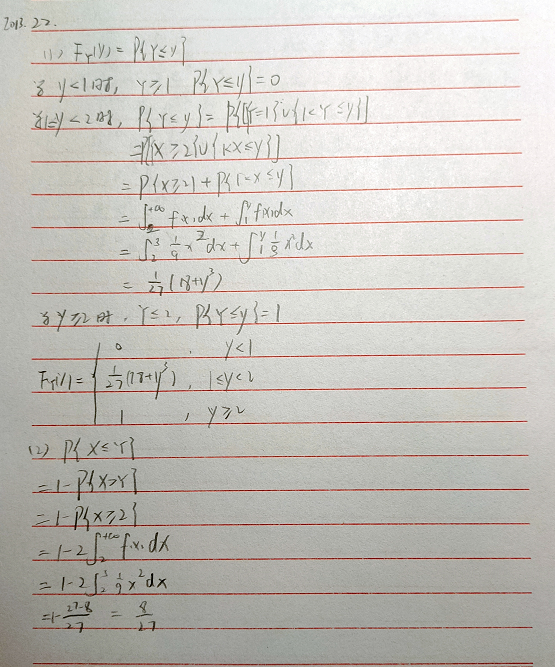 2013.22.
(1) F_Y(y) = P{Y≤y}
当 y<1时, Y≥1 P{Y≤y}=0
当1≤y<2时, P{Y≤y}= P{{Y=1}∪{1<Y≤y}}
=P{{X≥2}∪{1<X≤y}}
= P{X≥2} + P{1<X≤y}
= ∫₂^{+∞} f(x)dx + ∫₁^y f(x)dx
= ∫₂³ 1/9 x² dx + ∫₁^y 1/9 x² dx
= 1/27 (18+y³)
当 y≥2时, Y≤2, P{Y≤y}=1
F_Y(y) = { 0 , y<1
1/27 (18+y³) , 1≤y<2
1 , y≥2
(2) P{X≤Y}
=1-P{X>Y}
=1-P{X≥2}
=1-2∫₂^{+∞} f(x)dx
=1-2∫₂³ 1/9 x² dx
=1-27-8/27 = 8/27